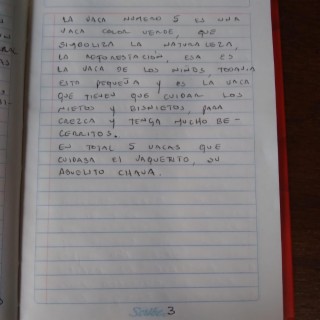 LA VACA NUMERO 5 ES UNA
VACA COLOR VERDE, QUE
SIMBOLIZA LA NATURALEZA,
LA REFORESTACIÓN, ESA ES
LA VACA DE LOS NIÑOS TODAVIA
ESTA PEQUEÑA Y ES LA VACA
QUE TIENEN QUE CUIDAR LOS
NIETOS Y BISNIETOS, PARA
CREZCA Y TENGA MUCHO BE-
CERRITOS.
EN TOTAL 5 VACAS QUE
CUIDABA EL VAQUERITO, SU
ABUELITO CHAVA.
Scribe 3